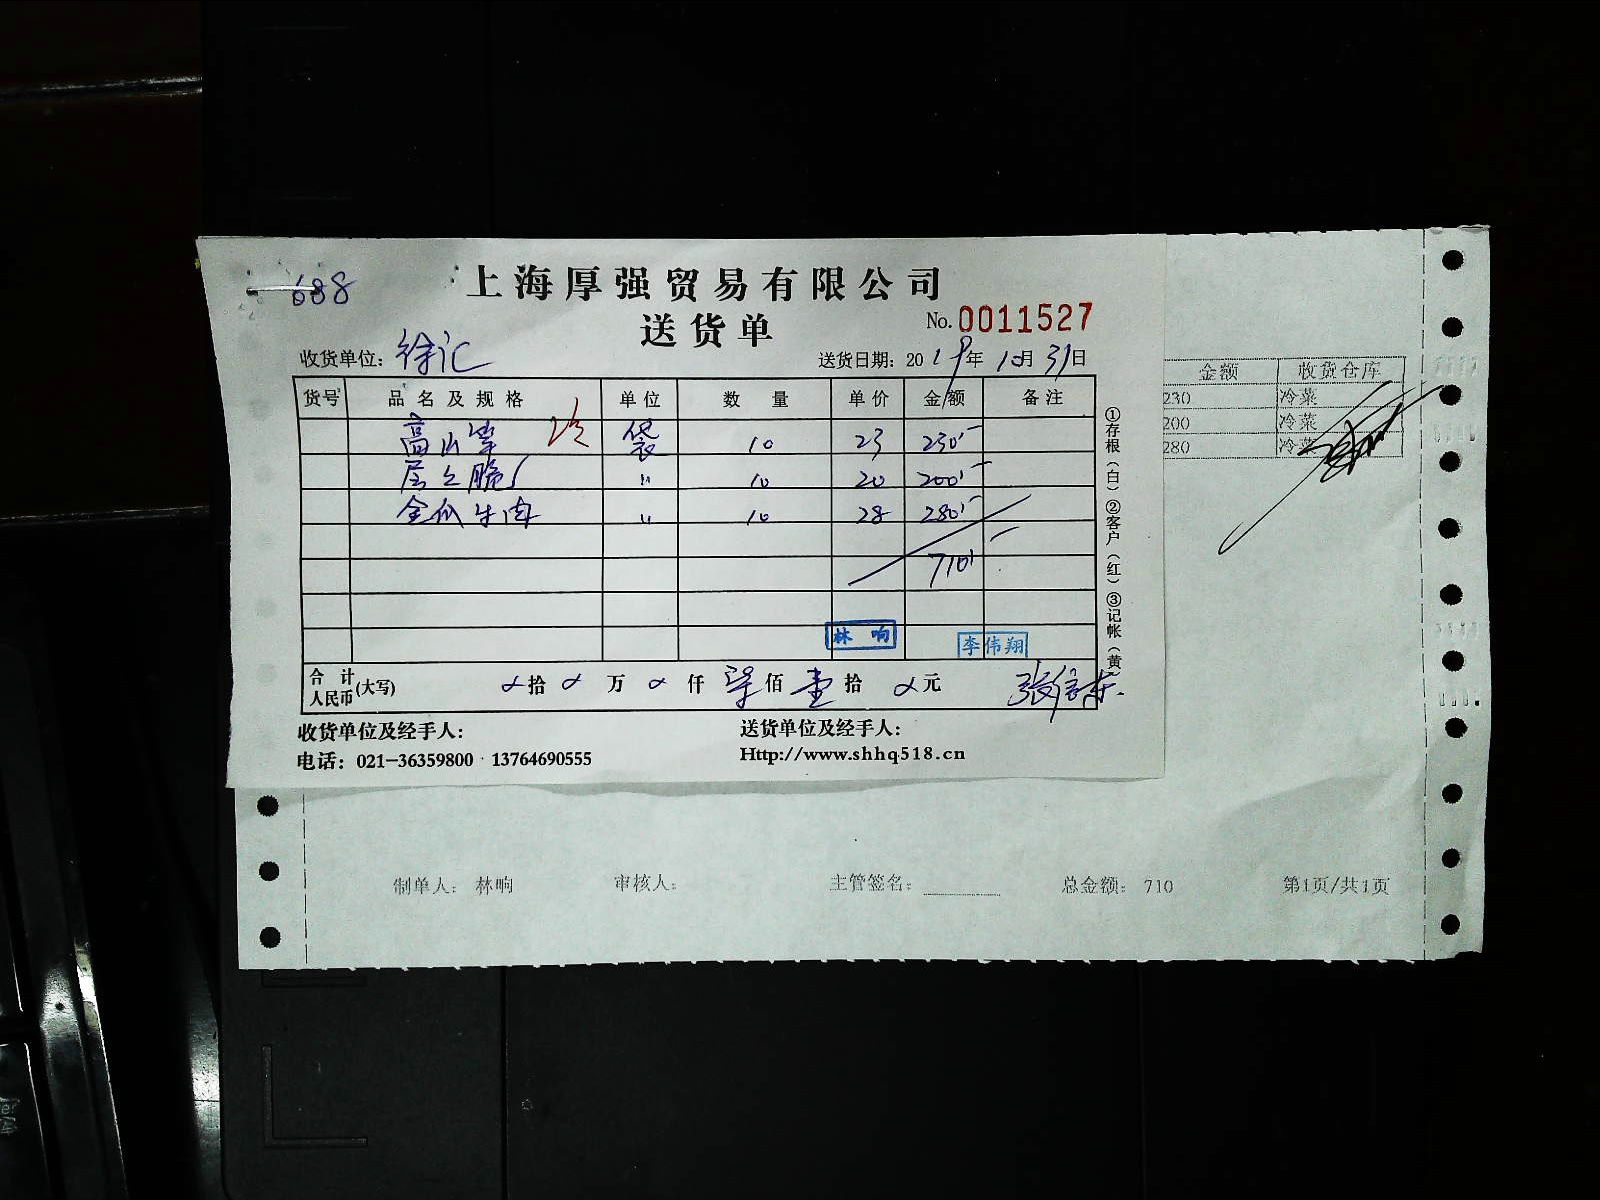 688
上海厚强贸易有限公司
送货单
No.0011527
收货单位：徐汇
送货日期：2019年10月31日
货号 品名及规格 单位 数量 单价 金额 备注
高山笋 冷 袋 10 23 230.-
层之脆 〃 10 20 200.-
金瓜牛肉 〃 10 28 280.-
710.-
林响 李伟翔
合计人民币(大写) 拾 万 仟 柒佰 壹拾 元
张信东
收货单位及经手人：
送货单位及经手人：
电话：021-36359800 13764690555
Http://www.shhq518.cn
①存根(白)②客户(红)③记帐(黄
金额 收货仓库
230 冷菜
200 冷菜
280 冷菜
制单人：林响 审核人： 主管签名： 总金额：710 第1页/共1页